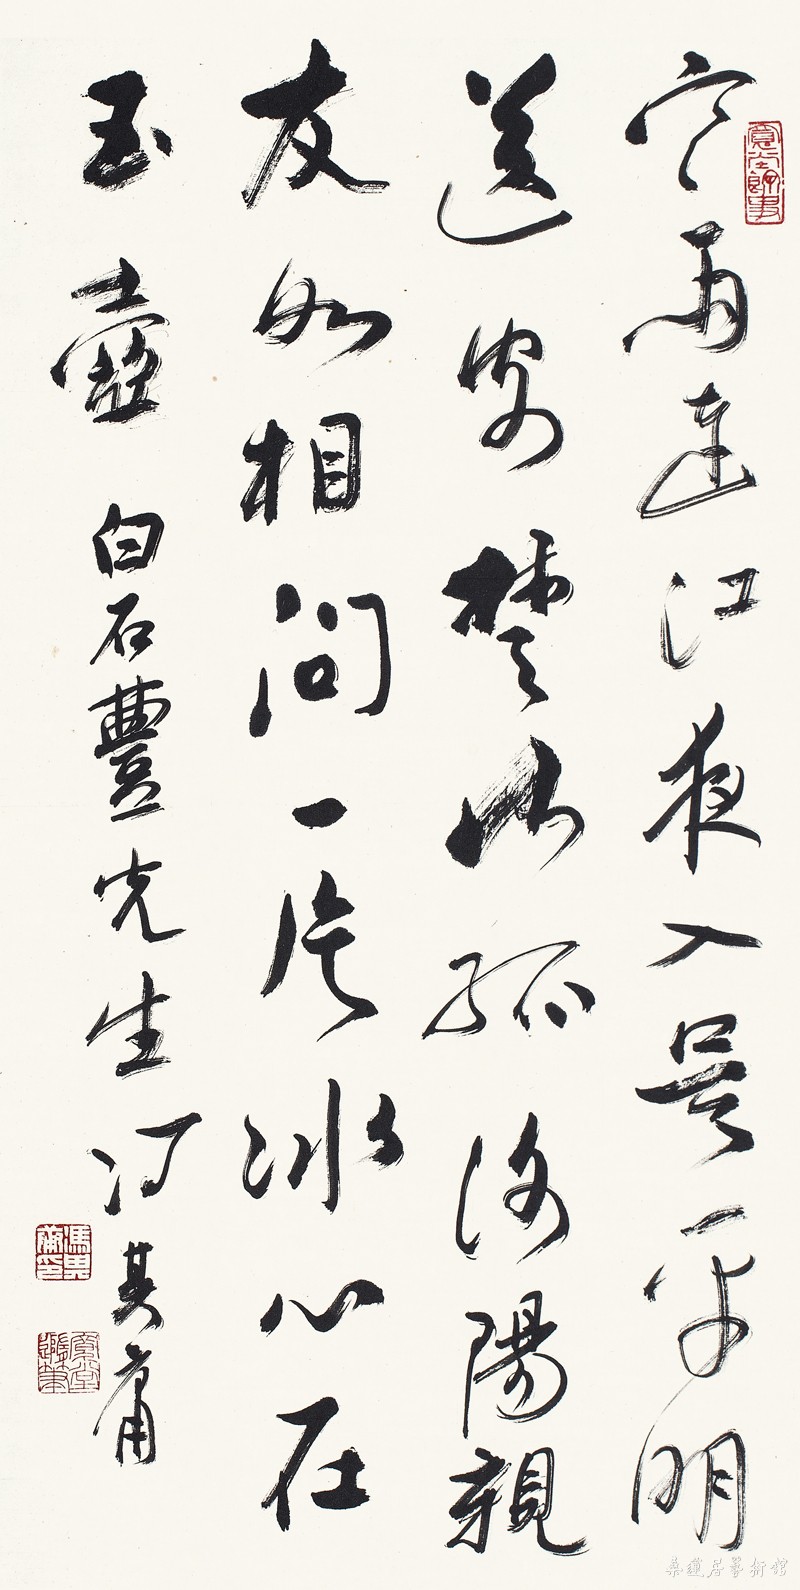 寒雨連江夜入吳平明
送客楚山孤洛陽親
友如相問一片冰心在
玉壺 白石豐先生 馮其庸
馮其庸印
桑蓮居藝術館